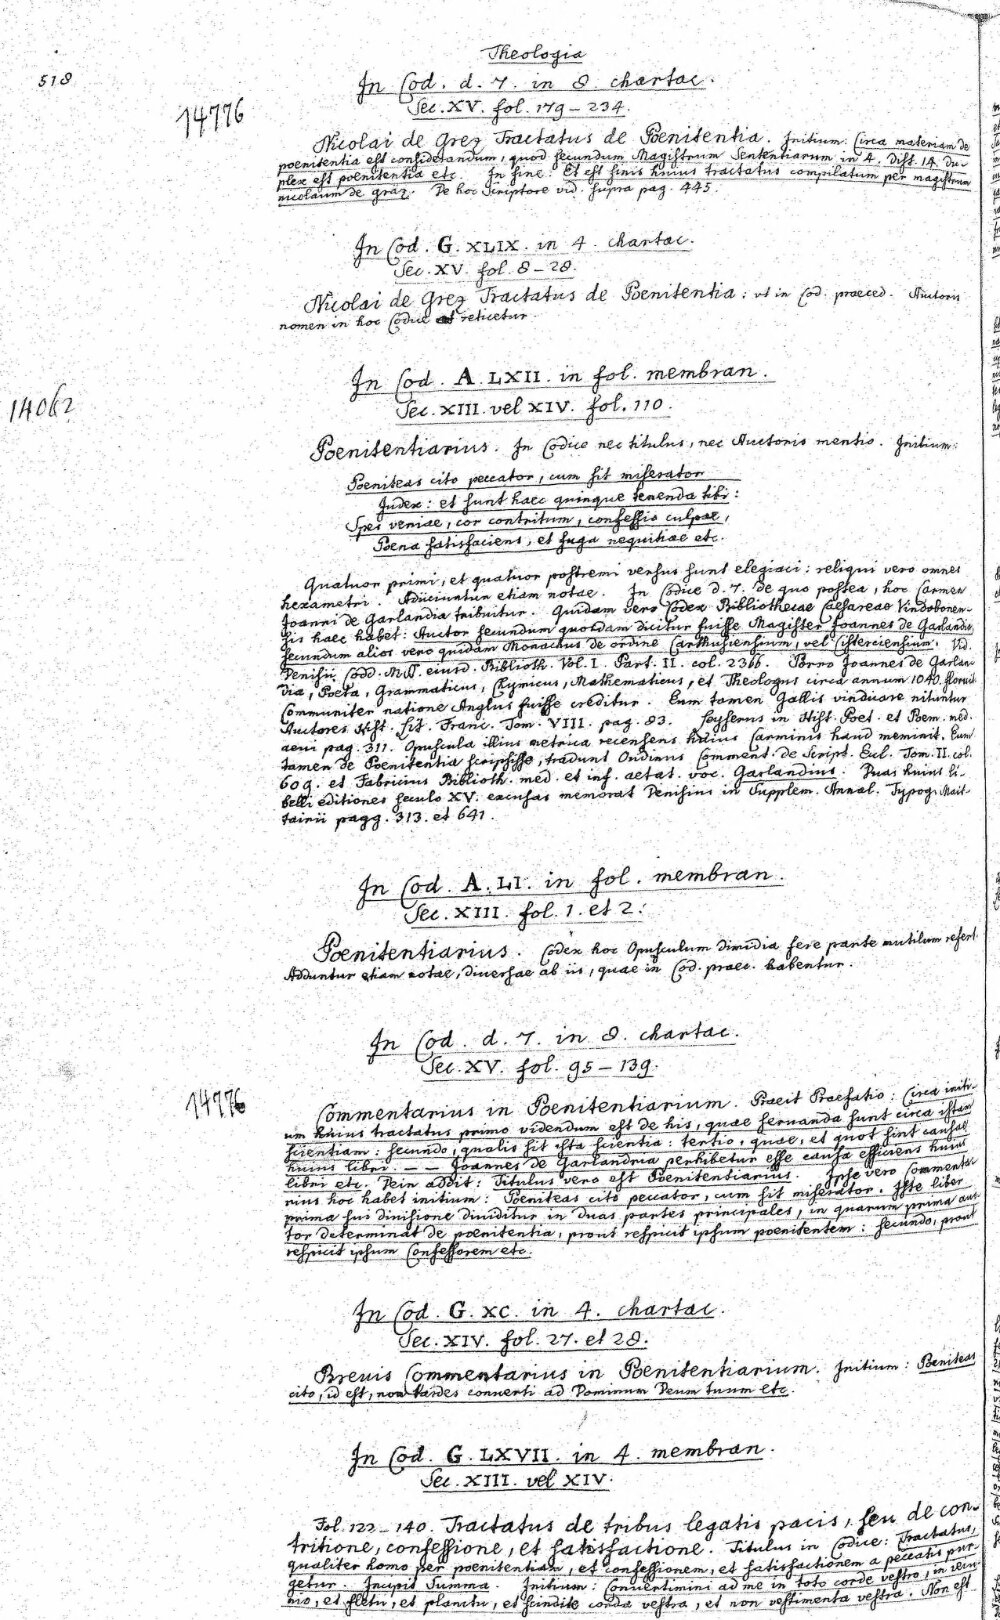 Theologia
518
In Cod. d. 7. in 8. chartac.
14776
Sec. XV. fol. 179–234.
Nicolai de Grez Tractatus de Poenitentia. Initium. Circa materiam de
poenitentia est considerandum, quod secundum Magistrum Sententiarum in 4. Dist. 14. du-
plex est poenitentia etc. In fine: Et est finis huius tractatus compilatum per magistrum
nicolaum de gräz. De hoc Scriptore vid. supra pag. 445.
In Cod. G. XLIX. in 4. chartac.
Sec. XV. fol. 8–28.
Nicolai de Grez Tractatus de Poenitentia: ut in Cod. praeced. Auctoris
nomen in hoc Codice reticetur.
In Cod. A. LXII. in fol. membran.
14062
Sec. XIII. vel XIV. fol. 110.
Poenitentiarius. In Codice nec titulus, nec Auctoris mentio. Initium:
Poeniteas cito peccator, cum sit miserator
Iudex: et sunt haec quinque tenenda tibi:
Spes veniae, cor contritum, confessio culpae,
Poena satisfaciens, et fuga nequitiae etc.
Quatuor primi, et quatuor postremi versus sunt elegiaci: reliqui vero omnes
hexametri. Adiiciuntur etiam notae. In Codice d. 7. de quo postea, hoc Carmen
Joanni de Garlandia tribuitur. Quidam vero Codex Bibliothecae Caesareae Vindobonen-
sis haec habet: Auctor secundum quosdam dicitur fuisse Magister Joannes de Garlandia,
secundum alios vero quidam Monachus de ordine Carthusiensium, vel Cisterciensium. Vid.
Denisii Codd. MSS. eiusd. Biblioth. Vol. I. Part. II. col. 2366. Porro Joannes de Garlan-
dia, Poeta, Grammaticus, Chymicus, Mathematicus, et Theologus circa annum 1040. floruit.
Communiter natione Anglus fuisse creditur. Eum tamen Gallis vindicare nituntur
Auctores Hist. Lit. Franc. Tom. VIII. pag. 83. Leyserus in Hist. Poet. et Poem. med.
aevi pag. 311. Opuscula illius metrica recensens huius Carminis haud meminit. Eum
tamen de Poenitentia scripsisse, tradunt Oudinus Comment. de Script. Eccl. Tom. II. col.
609. et Fabricius Biblioth. med. et inf. aetat. voc. Garlandius. Duas huius li-
belli editiones seculo XV. excusas memorat Denisius in Supplem. Annal. Typog. Mait-
tairii pagg. 313. et 641.
In Cod. A. LI. in fol. membran.
Sec. XIII. fol. 1. et 2.
Poenitentiarius. Codex hoc Opusculum dimidia fere parte mutilum refert.
Adduntur etiam notae, diversae ab iis, quae in Cod. praec. habentur.
In Cod. d. 7. in 8. chartac.
Sec. XV. fol. 95–139.
14776
Commentarius in Poenitentiarium. Praeit Praefatio: Circa initi-
um huius tractatus primo videndum est de his, quae servanda sunt circa istam
scientiam: secundo, qualis sit ista scientia: tertio, quae, et quot sint causae
huius libri. — — Joannes de Garlandria perhibetur esse causa efficiens huius
libri etc. Dein addit: Titulus vero est Poenitentiarius. Ipse vero Commenta-
rius hoc habet initium: Poeniteas cito peccator, cum sit miserator. Iste liber
prima sui divisione dividitur in duas partes principales, in quarum prima auc-
tor determinat de poenitentia, prout respicit ipsum poenitentem: secundo, prout
respicit ipsum Confessorem etc.
In Cod. G. XC. in 4. chartac.
Sec. XIV. fol. 27. et 28.
Brevis Commentarius in Poenitentiarium. Initium: Poeniteas
cito, id est, non tardes converti ad Dominum Deum tuum etc.
In Cod. G. LXVII. in 4. membran.
Sec. XIII. vel XIV.
Fol. 122–140. Tractatus de tribus legatis pacis, seu de con-
tritione, confessione, et satisfactione. Titulus in Codice: Tractatus,
qualiter homo per poenitentiam, et confessionem, et satisfactionem a peccatis pur-
getur. Incipit Summa. Initium: Convertimini ad me in toto corde vestro, in ieiu-
nio, et fletu, et planctu, et scindite corda vestra, et non vestimenta vestra. Non est